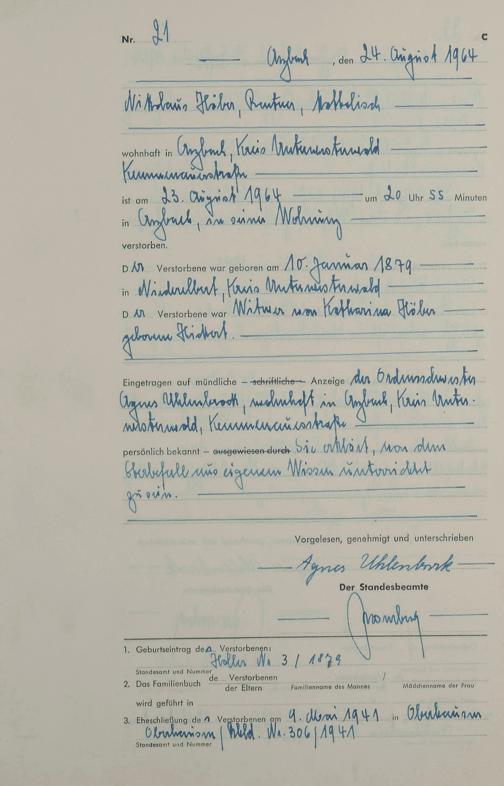 Nr. 21 C
Arzbach, den 24. August 1964
Nikolaus Höber, Rentner, katholisch
wohnhaft in Arzbach, Kreis Unterwesterwald
Kemmenauerstraße
ist am 23. August 1964 um 20 Uhr 55 Minuten
in Arzbach, in seiner Wohnung
verstorben.
Der Verstorbene war geboren am 10. Januar 1879
in Niederelbert, Kreis Unterwesterwald
Der Verstorbene war Witwer von Katharina Höber
geborene Hickert.
Eingetragen auf mündliche – schriftliche – Anzeige der Ordensschwester
Agnes Uhlenbrock, wohnhaft in Arzbach, Kreis Unter-
westerwald, Kemmenauerstraße
persönlich bekannt – ausgewiesen durch Sie erklärt, von dem
Sterbefall aus eigenem Wissen unterrichtet
zu sein.
Vorgelesen, genehmigt und unterschrieben
Agnes Uhlenbrock
Der Standesbeamte
1. Geburtseintrag des Verstorbenen:
Holler Nr. 3 / 1879
Standesamt und Nummer
2. Das Familienbuch de Verstorbenen /
der Eltern Familienname des Mannes Mädchenname der Frau
wird geführt in
3. Eheschließung des Verstorbenen am 9. Mai 1941 in Oberhausen
Oberhausen / Rhld. Nr. 306/1941
Standesamt und Nummer